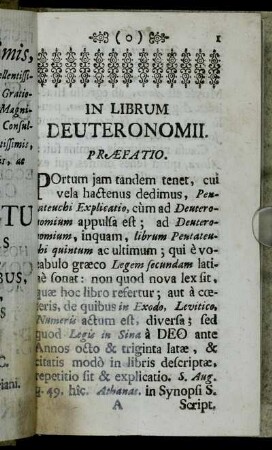 mis,
(o) 1
ellentissi-
Gratio-
Magni-
Consul-
tissimis,
is, ac
IN LIBRUM
DEUTERONOMII.
PRÆFATIO.
POrtum jam tandem tenet, cui
vela hactenus dedimus, Pen-
tateuchi Explicatio, cùm ad Deutero-
nomium appulsa est; ad Deutero-
nomium, inquam, librum Pentateu-
chi quintum ac ultimum; qui è vo-
cabulo græco Legem secundam lati-
nè sonat: non quod nova lex sit,
quæ hoc libro refertur; aut à cœ-
teris, de quibus in Exodo, Levitico,
Numeris actum est, diversa; sed
quod Legis in Sina à DEO ante
Annos octo & triginta latæ, &
citatis modò in libris descriptæ,
repetitio sit & explicatio. S. Aug.
q. 49. hîc. Athanas. in Synopsi S.
A Script.
TU
S
BUS,
C.
iani.